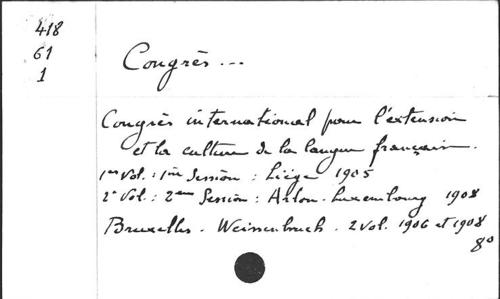 418
61
1
Congrès...
Congrès international pour l'extension
et la culture de la langue française.
1er Vol. : 1ère Session : Liége 1905
2e Vol. : 2ème Session : Arlon-Luxembourg 1908
Bruxelles. Weissenbruch. 2 vol. 1906 et 1908
8°